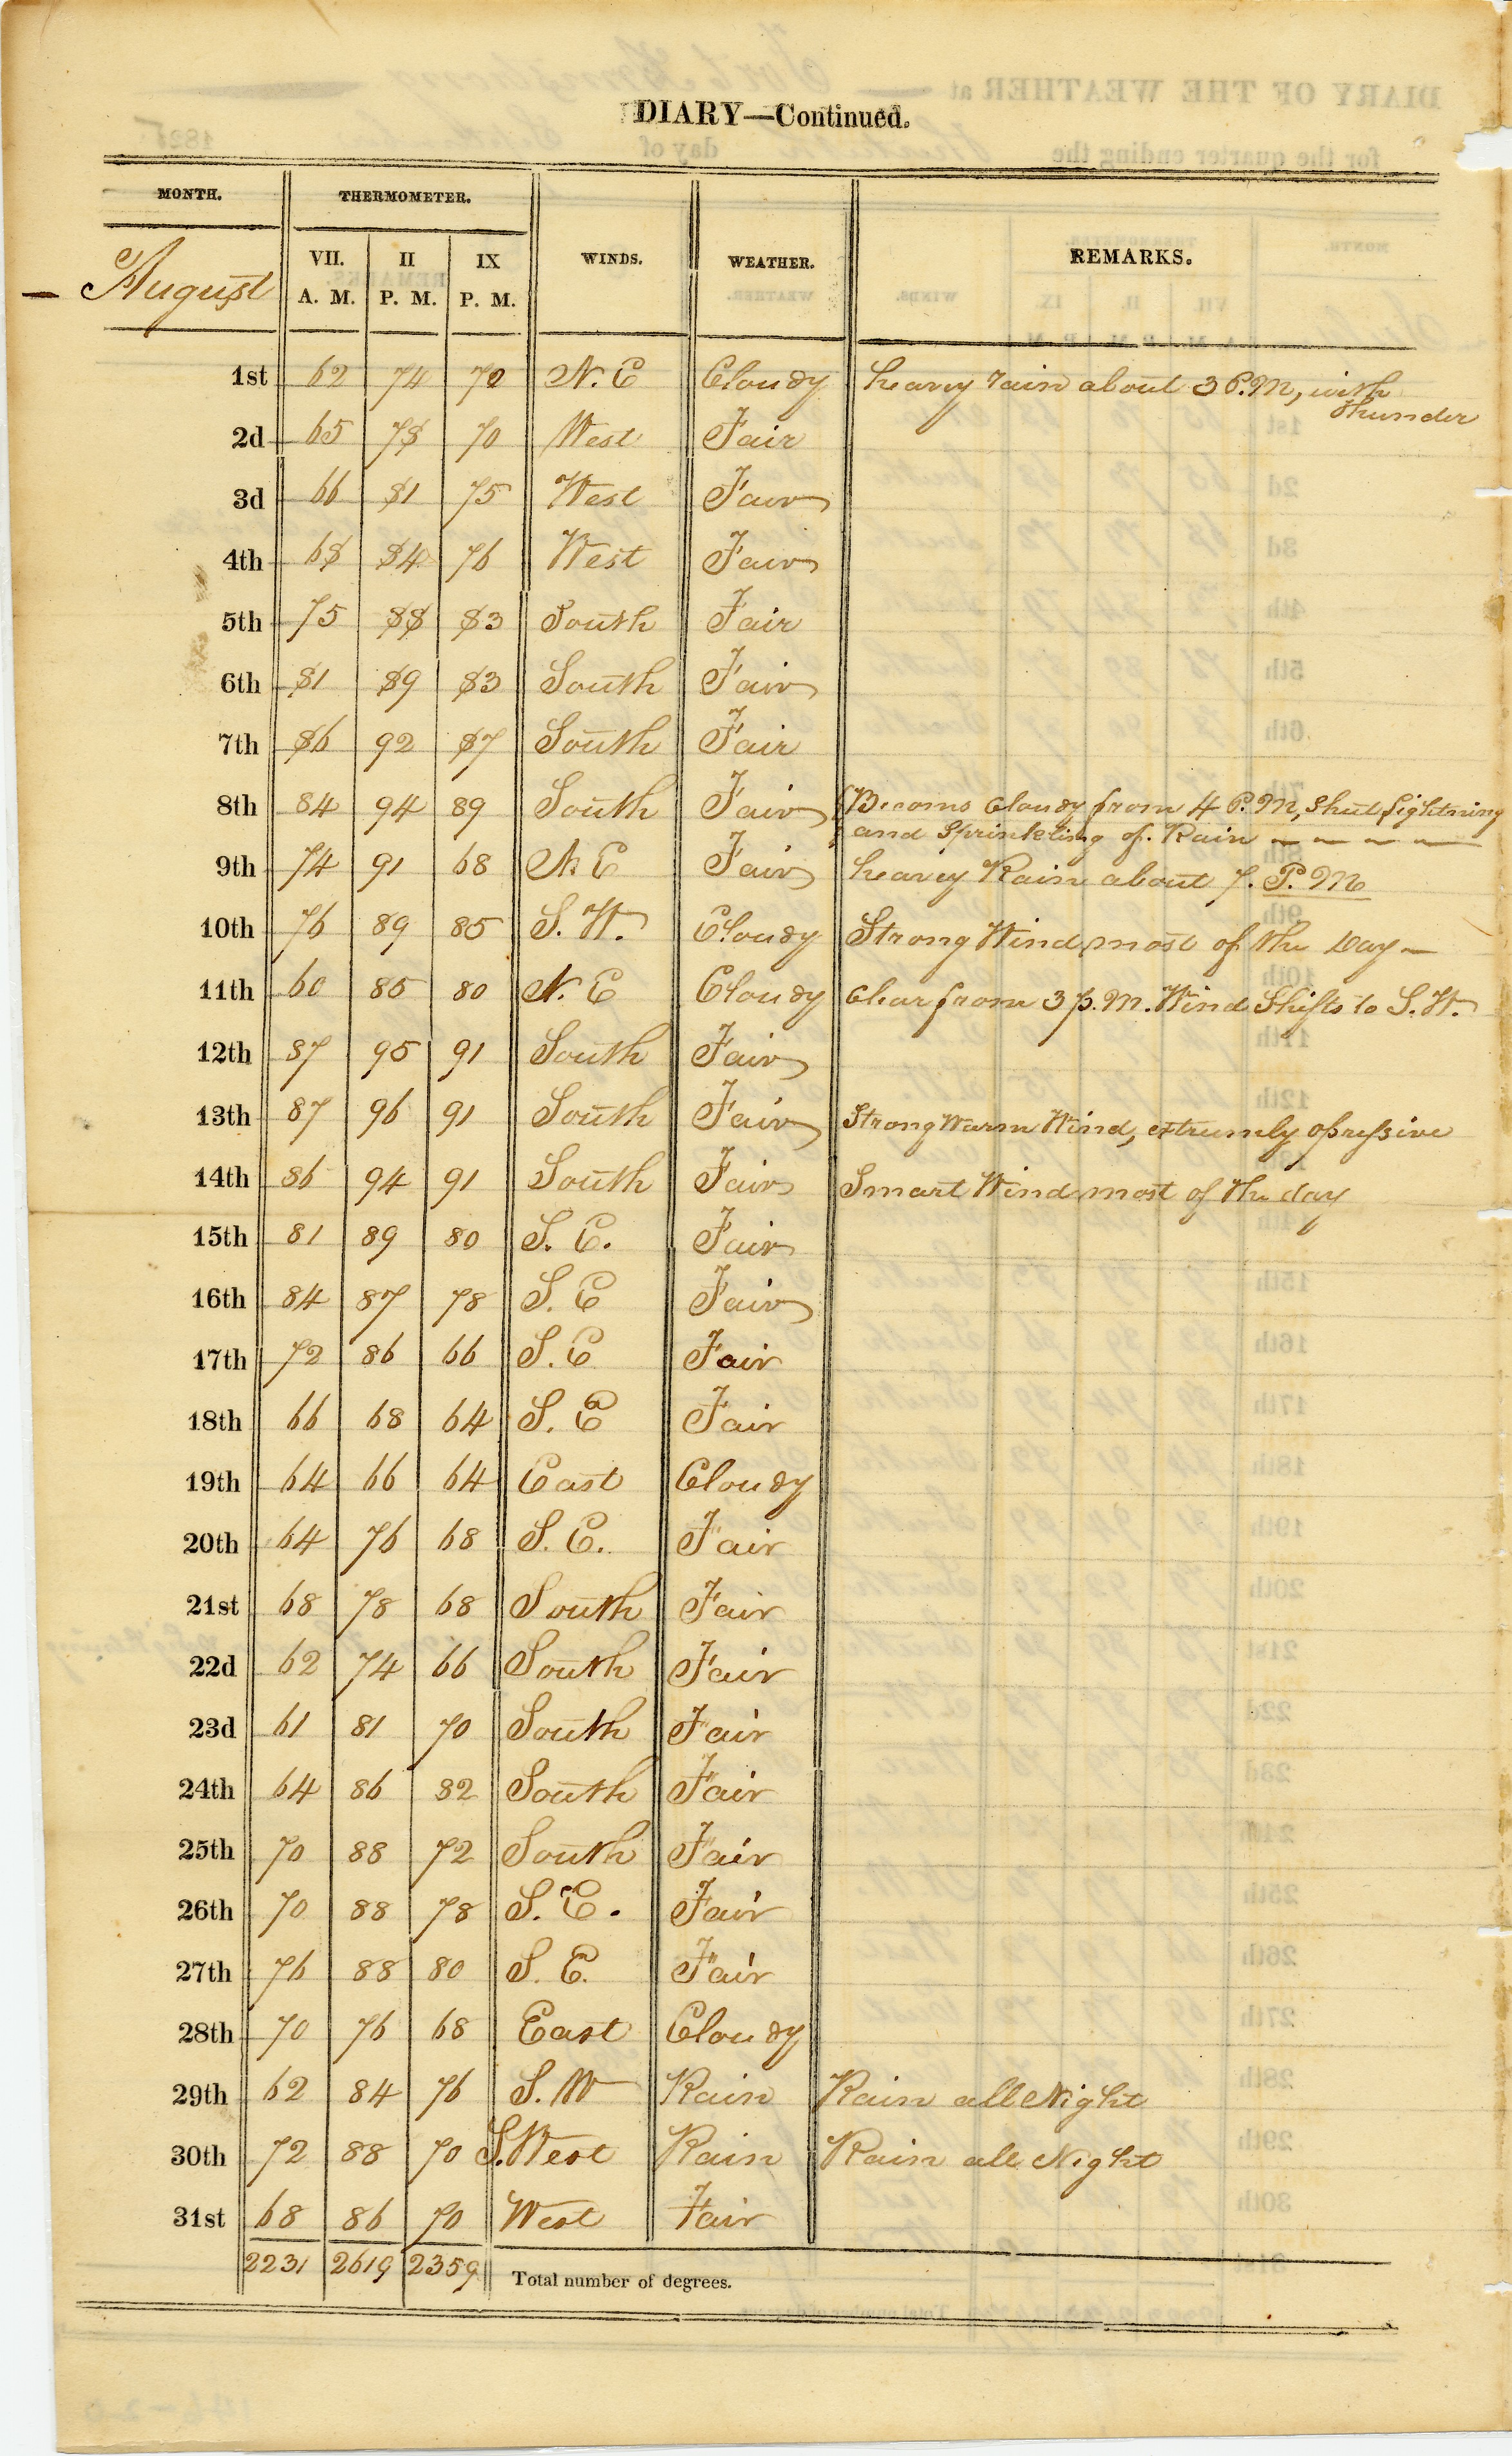 DIARY—Continued.
MONTH. THERMOMETER. WINDS. WEATHER. REMARKS.
August VII. A. M. II P. M. IX P. M.
1st 62 74 70 N. E Cloudy heavy rain about 3 P.M, with
thunder
2d 65 78 70 West Fair
3d 66 81 75 West Fair
4th 68 84 76 West Fair
5th 75 88 83 South Fair
6th 81 89 83 South Fair
7th 86 92 87 South Fair
8th 84 94 89 South Fair Becoms Cloudy from 4 P.M, Shut lightning
and Sprinkling of Rain
9th 74 91 68 N. E Fair heavey Rain about 7. P.M
10th 76 89 85 S. W. Cloudy Strong Wind most of the Day —
11th 60 85 80 N. E Cloudy Clear from 3 p.M. Wind Shifts to S. W.
12th 87 95 91 South Fair
13th 87 96 91 South Fair Strong Warm Wind, extrumly opressive
14th 86 94 91 South Fair Smart Wind most of the day
15th 81 89 80 S. E. Fair
16th 84 87 78 S. E Fair
17th 72 86 66 S. E Fair
18th 66 68 64 S. E Fair
19th 64 66 64 East Cloudy
20th 64 76 68 S. E. Fair
21st 68 78 68 South Fair
22d 62 74 66 South Fair
23d 61 81 70 South Fair
24th 64 86 82 South Fair
25th 70 88 72 South Fair
26th 70 88 78 S. E. Fair
27th 76 88 80 S. E. Fair
28th 70 76 68 East Cloudy
29th 62 84 76 S. W Rain Rain all Night
30th 72 88 70 S. West Rain Rain all Night
31st 68 86 70 West Fair
2231 2619 2359 Total number of degrees.